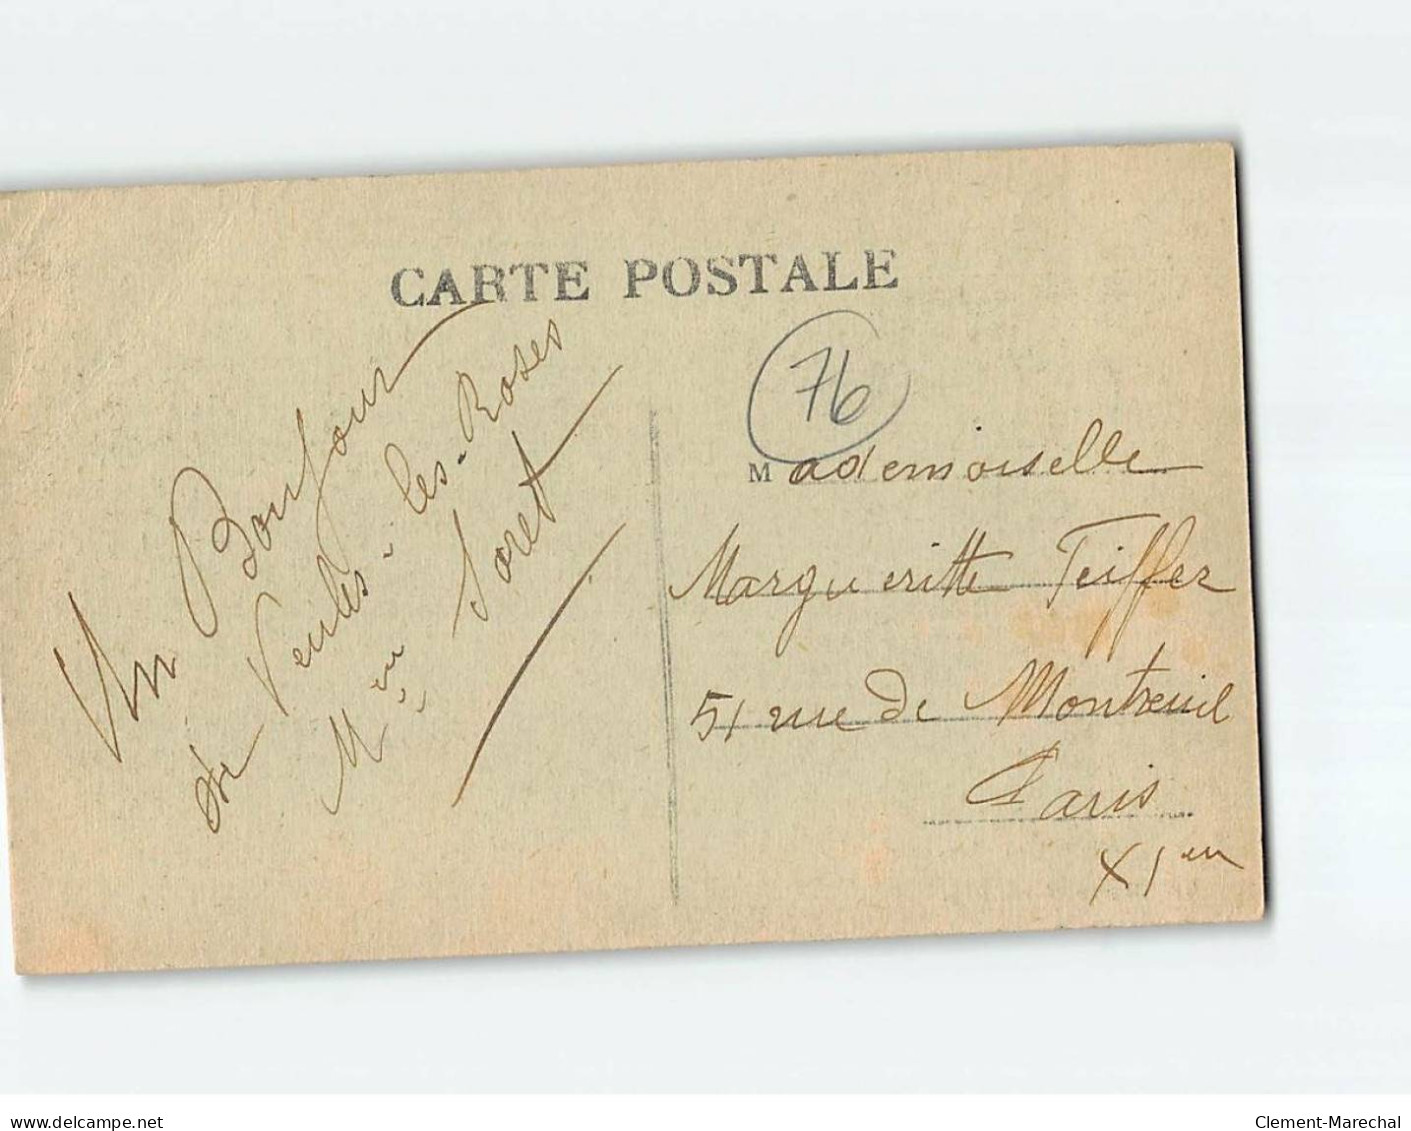 CARTE POSTALE
76
Un Bonjour
de Veules-les-Roses
M Soret
Mademoiselle
Marguerite Teiffer
51 rue de Montreuil
Paris
XI em
www.delcampe.net
Clement-Marechal